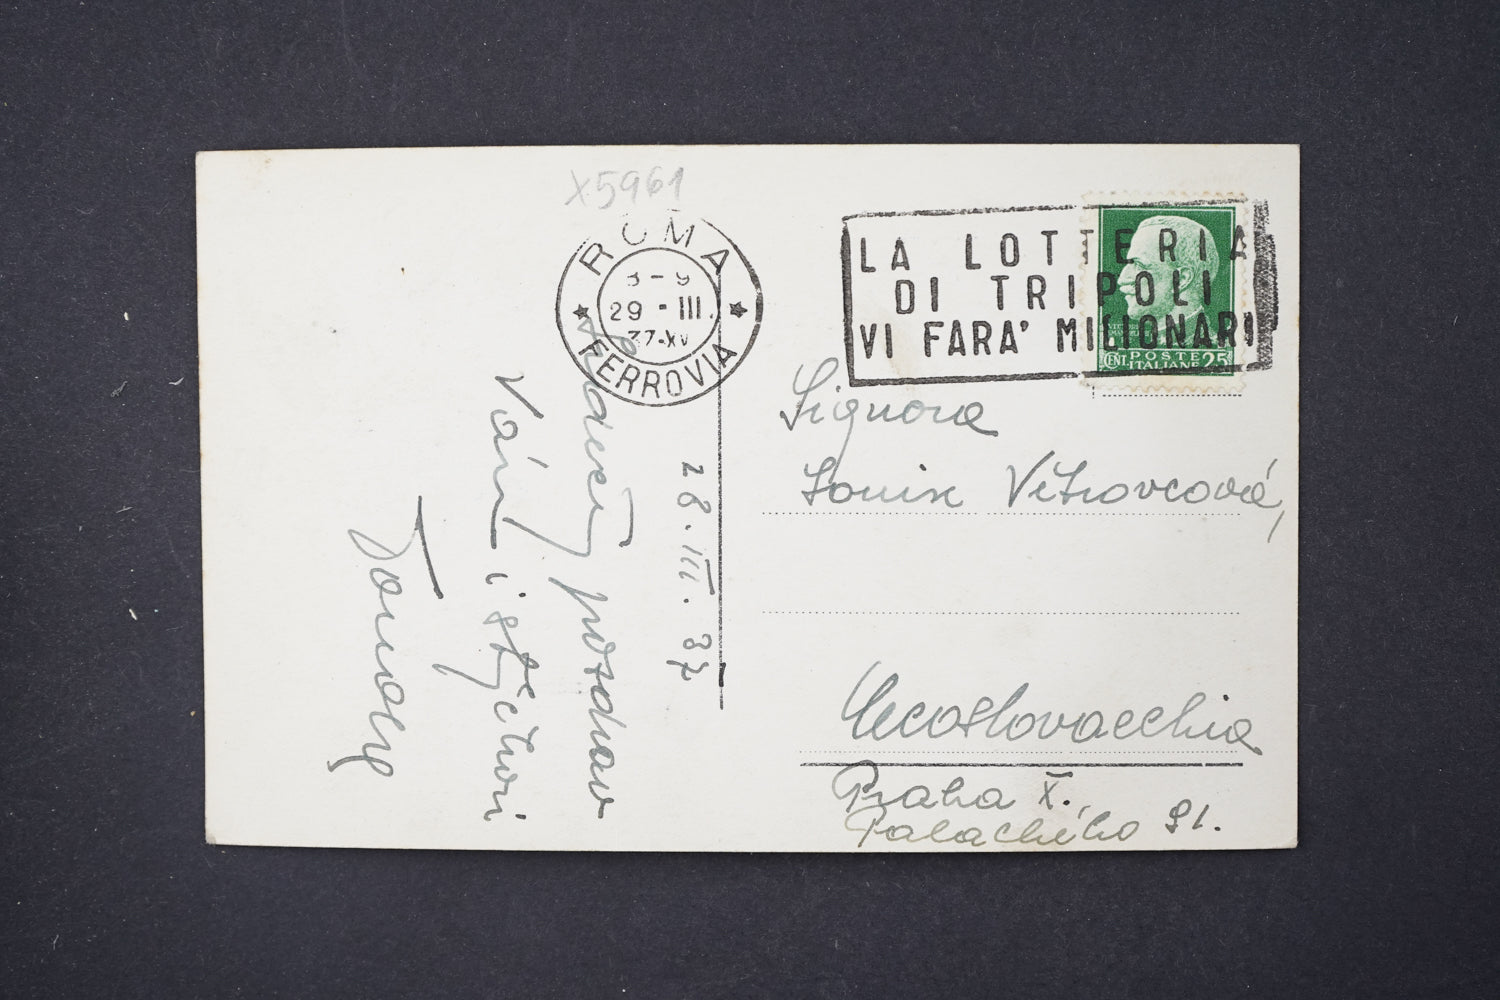 X5961
ROMA
8-9
29-III.
37-XV
FERROVIA
LA LOTTERIA
DI TRIPOLI
VI FARA' MILIONARI
CENT. POSTE 25
ITALIANE
28.III.37
Srdečný pozdrav
Vám i
Signora
Louise Větrovcová,
Cecoslovacchia
Praha X.
Palackého 91.